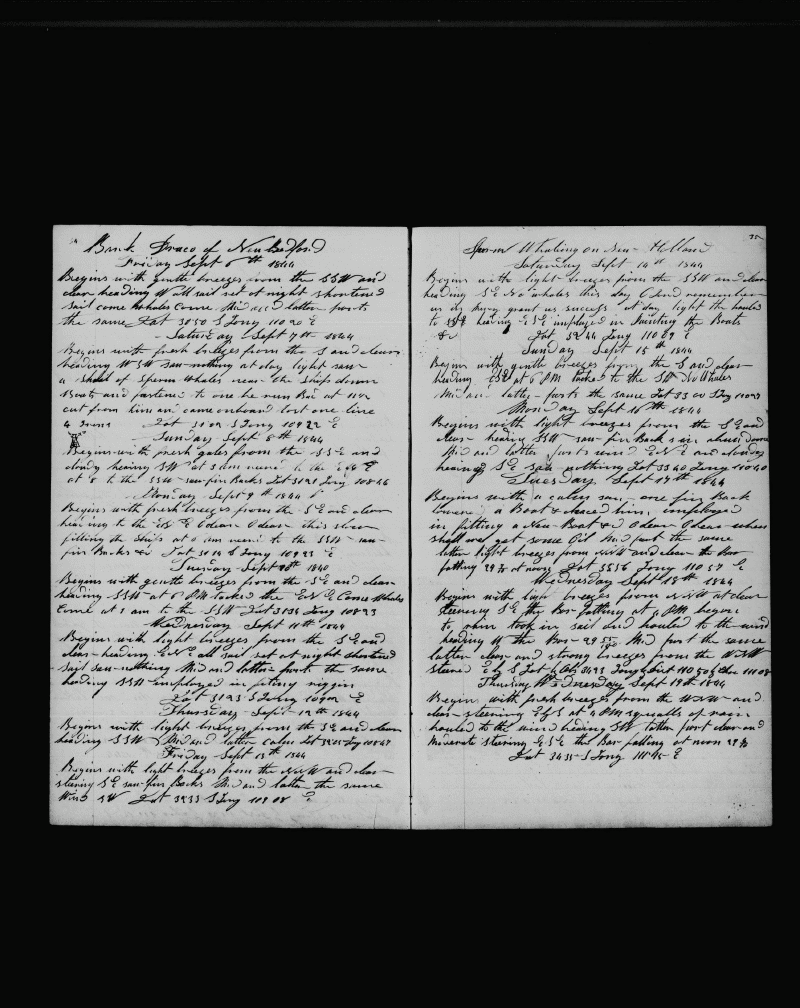 Bark Draco of New Bedford
Friday Sept 6th 1844
Begins with gentle breezes from the SSW and
clear heading W all sail set at night shortened
sail come whales Come Mid and latter parts
the same Lat 3050 S Long 11020 E
Saturday Sept 7th 1844
Begins with fresh breezes from the S and clear
heading WSW saw nothing at day light saw
a shoal of Sperm Whales near the ship down
Boats and fastened to one he run
cut from him and came onboard lost one line
4 Irons Lat S Long 10922 E
Sunday Sept 8th 1844
Begins with fresh gales from the SSE and
cloudy heading SW at 3 am to the
at 8 to the SSW saw fin Backs Lat Long 10846
Monday Sept 9th 1844
Begins with fresh breezes from the SE and clear
heading to the E O dear O dear this slow
filling the ships at to the SSW saw
fin Backs Lat S Long 10923 E
10th 1840
Begins with gentle breezes from the SE and clear
heading SSW at 6 PM tacked the ENE Come Whales
Come at 2 am to the SSW Lat 3138 Long 10823
Wednesday Sept 11th 1844
Begins with light breezes from the SE and
clear heading ENE all sail set at night shortened
sail saw nothing Mid and latter parts the same
heading SSW employed in fiting riggin
Lat 3123 S Long E
Thursday Sept 12th 1844
Begins with light breezes from the SE and clear
heading SSW Mid and latter calm Lat Long 10847
Friday Sept 13th 1844
Begins with light breezes from the NNW and clear
steering SE saw fin Backs Mid and latter the same
Wind Lat 3233 S Long 10908 E
75
Sperm Whaling on New Holland
Saturday Sept 14th 1844
Begins with light breezes from the SSW and clear
heading SE No whales this day O Lord remember
us and grant us success at day light the hauled
to heading ESE employed in Painting the Boats
&c Lat 3244 Long 11069 E
Sunday Sept 15th 1844
Begins with gentle breezes from the S and clear
heading ESE at 6 PM tacked to the SW No Whales
Mid and latter parts the same Lat 33 S Long
Monday Sept 16th 1844
Begins with light breezes from the SE and
clear heading SSW saw fin Back down
Mid and latter parts wind ENE and cloudy
heading SE saw nothing Lat 3340 Long 11040
Tuesday Sept 17th 1844
Begins with a calm saw one fin Back
lowered a Boat & chaced him employed
in fitting a New Boat & O dear O dear when
shall we get some Oil Mid part the same
latter light breezes from NNW and clear the Bar
falling at noon Lat 3536 Long 11057 E
Wednesday Sept 18th 1844
Begins with light breezes from NNW and clear
steering SE the Bar falling at PM began
to took in sail and hauled to the wind
heading W the Bar 29 Mid part the same
latter clear and strong breezes from the WNW
steered E by S Lat by Obs 3493 Long
Thursday Wednesday Sept 19th 1844
Begins with fresh breezes from the WNW and
clear steering E by S at 4 PM squalls of rain
hauled to the wind heading SW latter part clear and
Moderate steering ESE the Bar falling at noon
Lat 3435 S Long 11145 E